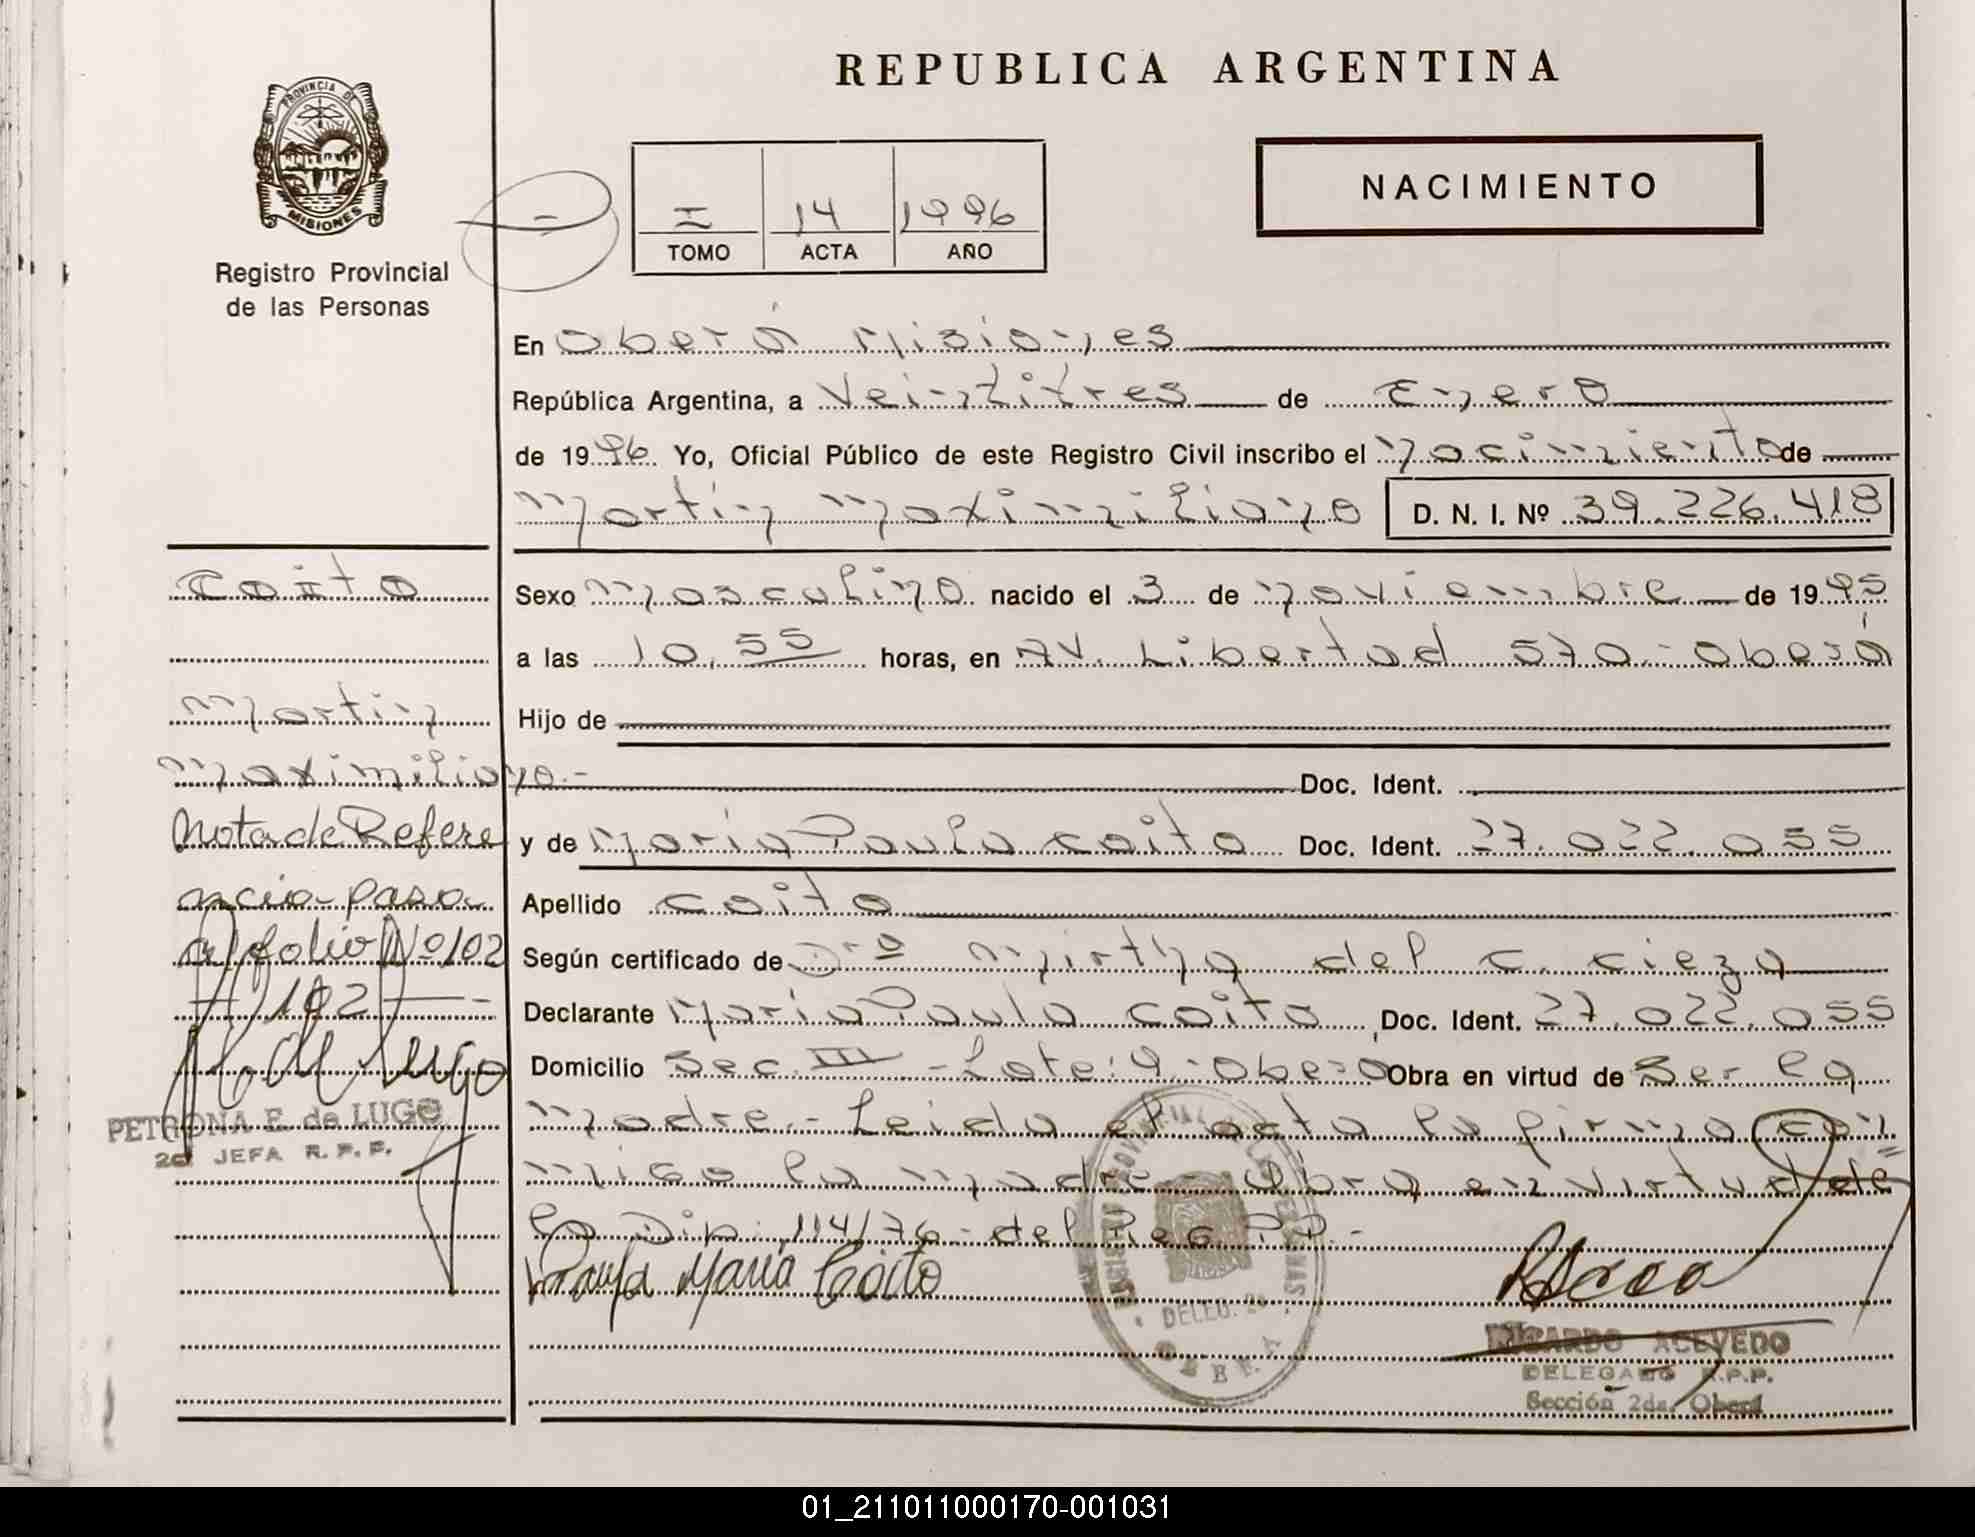 REPUBLICA ARGENTINA
PROVINCIA DE
MISIONES
Registro Provincial
de las Personas
I 14 1996
TOMO ACTA AÑO
NACIMIENTO
En Oberá Misiones
República Argentina, a Veintitres de Enero
de 1996 Yo, Oficial Público de este Registro Civil inscribo el nacimiento de
Martin Maximiliano D. N. I. Nº 39.226.418
Sexo masculino nacido el 3 de noviembre de 1995
a las 10,55 horas, en AV. Libertad 570 - Oberá
Hijo de
Doc. Ident.
y de María Paula Coito Doc. Ident. 27.022.055
Apellido Coito
Según certificado de Dra Mirtha del C. Cieza
Declarante María Paula Coito Doc. Ident. 27.022.055
Domicilio Sec. III - Lote: 9 - Oberá Obra en virtud de Ser la
madre.- Leida el acta la firma con
migo la madre - Obra en virtud de
la Dip: 114/76 - del Reg. P.P. -
Paula María Coito
DELEG. 2a
OBERA
RICARDO ACEVEDO
DELEGADO R.P.P.
Sección 2da. Oberá
Coito
Martin
Maximiliano.-
Nota de Refere
ncia pasa
al folio Nº 102
102
de Lugo
PETRONA E. de LUGO
2da JEFA R.P.P.
01_211011000170-001031